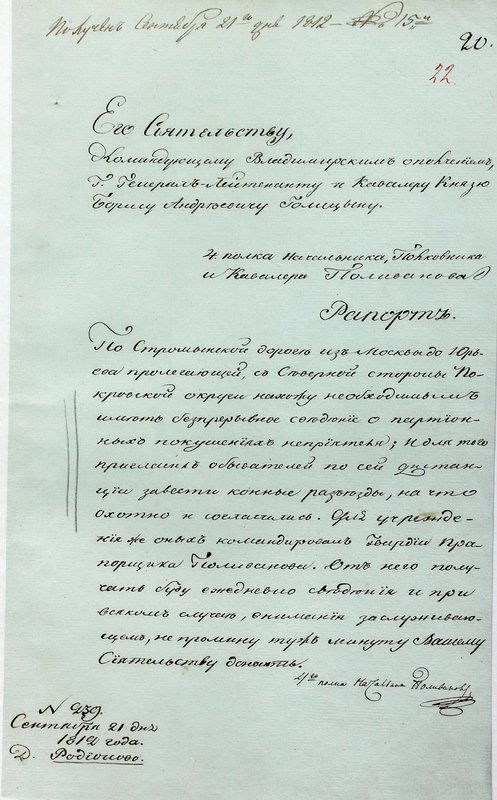 Полученъ Сентября 21го дня 1812 – № 15й
20.
22.
Его Сіятельству,
Командующему Владимирскимъ ополченіемъ,
Г. Генералъ-Лейтенанту и Кавалеру Князю
Борису Андреевичу Голицыну.
4 полка Начальника, Полковника
и Кавалера Поливанова
Рапортъ.
По Стромынской дороге изъ Москвы до Юрь-
ева пролегающей, съ Северной стороны По-
кровской округи нахожу необходимымъ
иметь безпрерывное сведеніе о партіон-
ныхъ покушеніяхъ непріятеля; И для того
пригласилъ обывателей по сей дистан-
ціи завести конные разъезды, на что
охотно и согласились. Для учрежде-
нія же оныхъ командировалъ Гвардіи Пра-
порщика Поливанова. Отъ него полу-
чать буду ежедневно сведенія и при
всякомъ случаю, вниманія заслуживаю-
щемъ, не промину тужъ минуту Вашему
Сіятельству донесть.
4го полка Начальникъ Поливановъ
N 239.
Сентября 21 дня
1812 года.
Д. Родіоново.